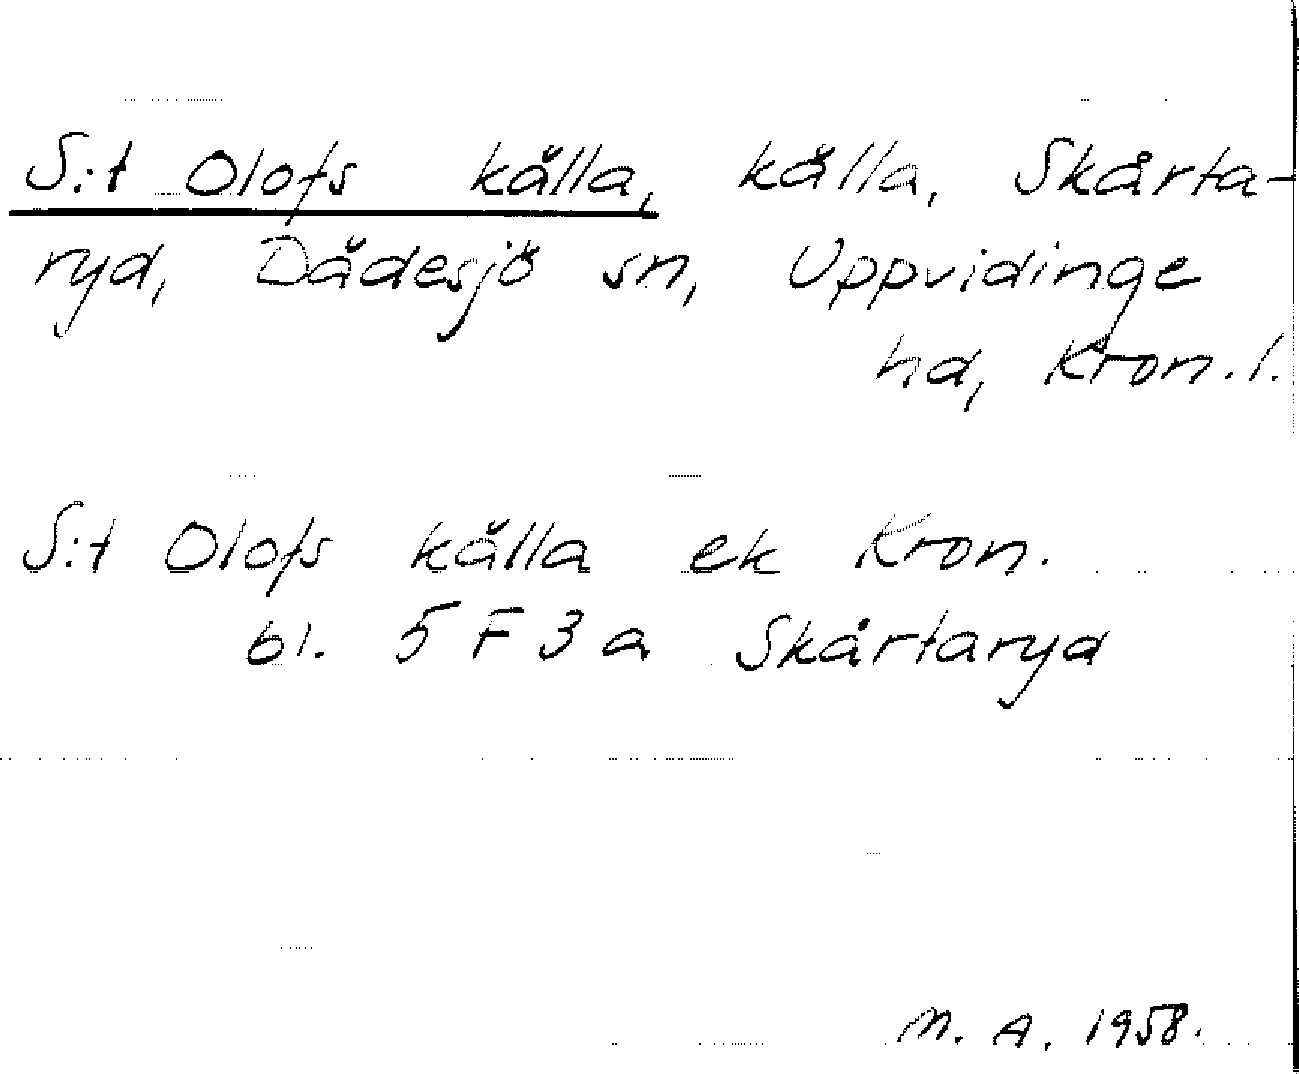 S:t Olofs källa, källa, Skårta-
ryd, Dädesjö sn, Uppvidinge
hd, Kron. l.
S:t Olofs källa ek Kron.
bl. 5 F 3 a Skårtaryd
M. A. 1958.